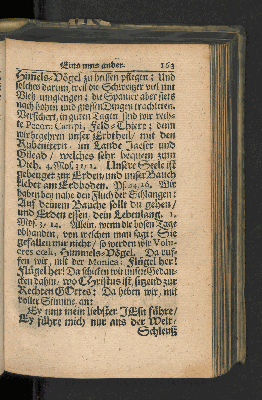 Eins ums ander. 163
Himels-Vögel zu heissen pflegen: Und
solches darum, weil die Schweitzer viel mit
Vieh umgiengen; die Spanier aber stets
nach hohen und grossen Dingen trachteten.
Versichert, in guten Tagen sind wir rech-
te Pecora Campi, Feld-Thiere; denn
wir begehren unser Erbtheil/ mit den
Rubenitern, im Lande Jaeser und
Gilead/ welches sehr bequem zum
Vieh. 4. Mos. 32/ 1. Unsere Seele ist
gebeuget zur Erden und unser Bauch
klebet am Erdboden. Ps. 44, 26. Wir
haben bey nahe den Fluch der Schlangen:
Auf deinem Bauche sollt du gehen/
und Erden essen dein Lebenlang. 1.
Mos. 3/ 14. Allein, wenn die bösen Tage
vorhanden, von welchen man sagt: Sie
gefallen mir nicht/ so werden wir Volu-
cres cœli, Himmels-Vögel. Da ruf-
fen wir, mit der Monica: Flügel her!
Flügel her! Da schicken wir unsre Gedan-
cken dahin, wo Christus ist, sitzend zur
Rechten GOttes: Da heben wir, mit
voller Stimme, an:
Ey nun mein liebster JEsu führe/
Ey führe mich nur aus der Welt/
Schleuß